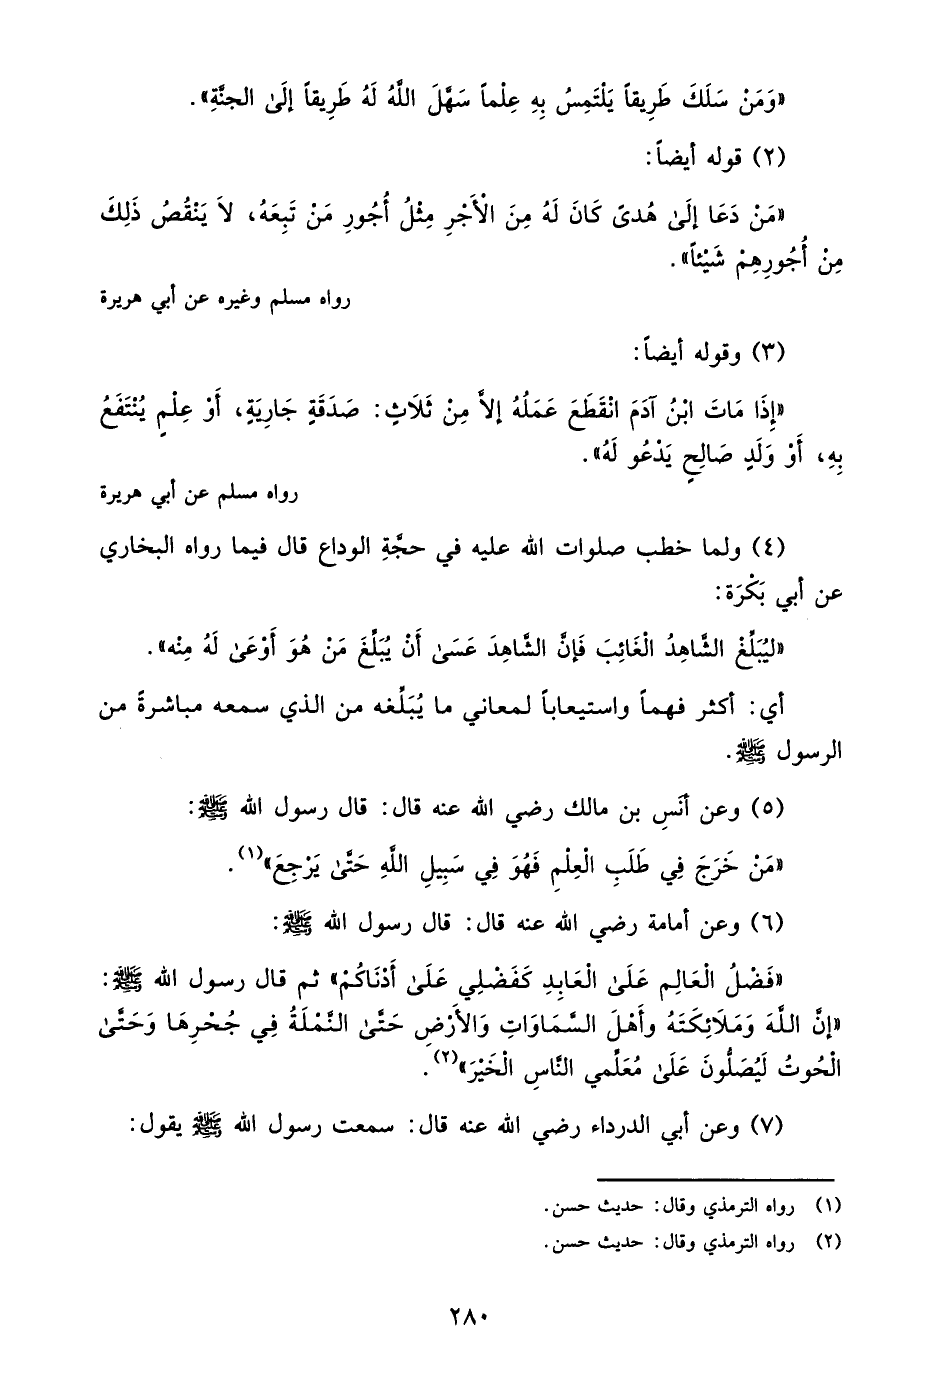 «وَمَنْ سَلَكَ طَرِيقاً يَلْتَمِسُ بِهِ عِلْماً سَهَّلَ اللَّهُ لَهُ طَرِيقاً إلَىٰ الجنَّةِ».
(٢) قوله أيضاً:
«مَنْ دَعَا إلَىٰ هُدىً كَانَ لَهُ مِنَ الْأَجْرِ مِثْلُ أُجُورِ مَنْ تَبِعَهُ، لاَ يَنْقُصُ ذَلِكَ
مِنْ أُجُورِهِمْ شَيْئاً».
رواه مسلم وغيره عن أبي هريرة
(٣) وقوله أيضاً:
«إِذَا مَاتَ ابْنُ آدَمَ انْقَطَعَ عَمَلُهُ إلاَّ مِنْ ثَلَاثٍ: صَدَقَةٍ جَارِيَةٍ، أَوْ عِلْمٍ يُنْتَفَعُ
بِهِ، أَوْ وَلَدٍ صَالِحٍ يَدْعُو لَهُ».
رواه مسلم عن أبي هريرة
(٤) ولما خطب صلوات الله عليه في حجَّةِ الوداع قال فيما رواه البخاري
عن أبي بَكْرَة:
«ليُبَلِّغْ الشَّاهِدُ الْغَائِبَ فَإِنَّ الشَّاهِدَ عَسَىٰ أَنْ يُبَلِّغَ مَنْ هُوَ أَوْعَىٰ لَهُ مِنْه».
أي: أكثر فهماً واستيعاباً لمعاني ما يُبَلِّغه من الذي سمعه مباشرةً من
الرسول ﷺ.
(٥) وعن أنَسِ بن مالك رضي الله عنه قال: قال رسول الله ﷺ:
«مَنْ خَرَجَ فِي طَلَبِ الْعِلْمِ فَهُوَ فِي سَبِيلِ اللَّهِ حَتَّىٰ يَرْجِعَ»(١).
(٦) وعن أمامة رضي الله عنه قال: قال رسول الله ﷺ:
«فَضْلُ الْعَالِمِ عَلَىٰ الْعَابِدِ كَفَضْلِي عَلَىٰ أَدْنَاكُمْ» ثم قال رسول الله ﷺ:
«إنَّ اللَّهَ وَمَلَائِكَتَهُ وأَهْلَ السَّمَاوَاتِ وَالأَرْضِ حَتَّىٰ النَّمْلَةُ فِي جُحْرِهَا وَحَتَّىٰ
الْحُوتُ لَيُصَلُّونَ عَلَىٰ مُعَلِّمي النَّاسِ الْخَيْرَ»(٢).
(٧) وعن أبي الدرداء رضي الله عنه قال: سمعت رسول الله ﷺ يقول:
(١) رواه الترمذي وقال: حديث حسن.
(٢) رواه الترمذي وقال: حديث حسن.
٢٨٠